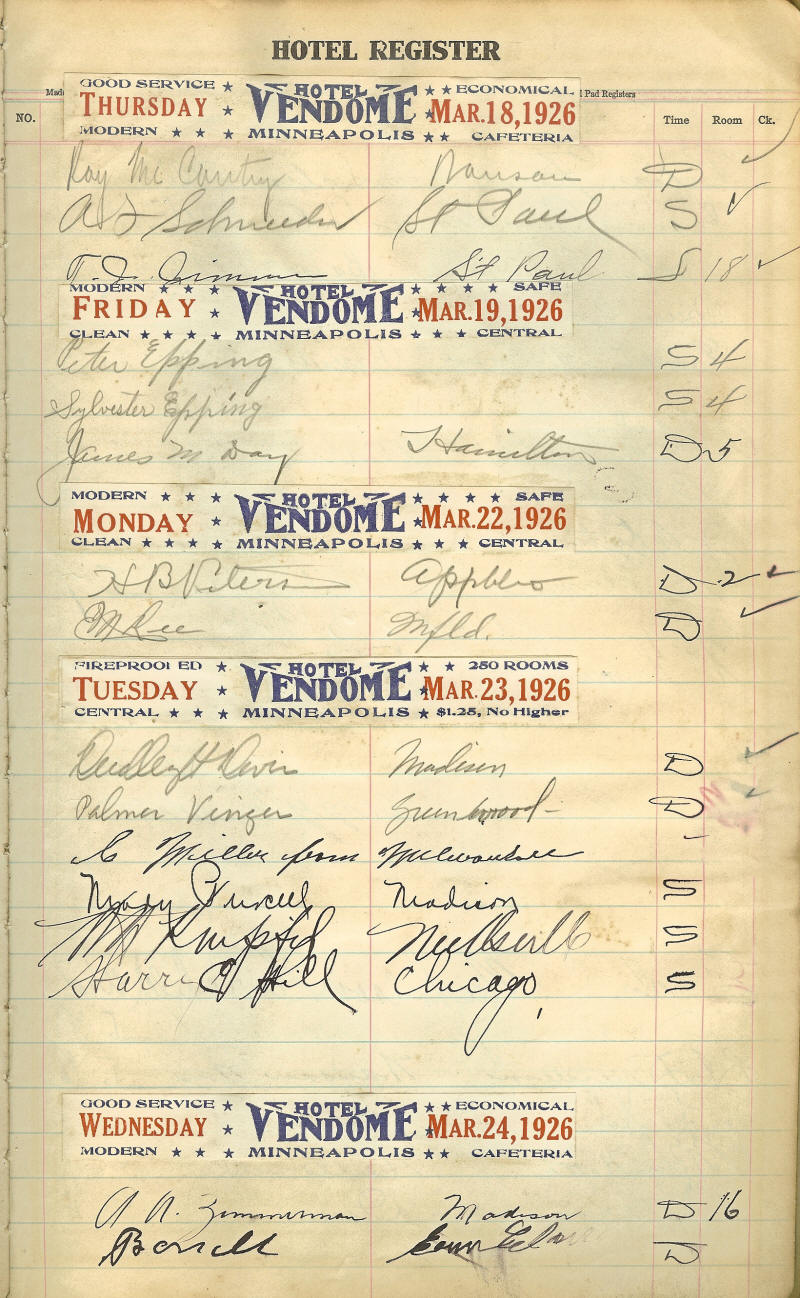 HOTEL REGISTER
Made Pad Registers
NO. Time Room Ck.
GOOD SERVICE ★ HOTEL ★ ★ ECONOMICAL
THURSDAY ★ VENDOME ★ MAR.18,1926
MODERN ★ ★ ★ MINNEAPOLIS ★ ★ CAFETERIA
Roy Mc Cantry D ✓
A J Schneider St Paul S ✓
T. J. Zimmer St Paul S 18 ✓
MODERN ★ ★ ★ HOTEL ★ ★ ★ ★ SAFE
FRIDAY ★ VENDOME ★ MAR.19,1926
CLEAN ★ ★ ★ ★ MINNEAPOLIS ★ ★ ★ CENTRAL
Peter Epping S 4
Sylvester Epping S 4
James M Day Hamilton D 5
MODERN ★ ★ ★ HOTEL ★ ★ ★ ★ SAFE
MONDAY ★ VENDOME ★ MAR.22,1926
CLEAN ★ ★ ★ ★ MINNEAPOLIS ★ ★ ★ CENTRAL
H B Peters D 2 ✓
Mfld. D ✓
FIREPROOFED ★ HOTEL ★ ★ 250 ROOMS
TUESDAY ★ VENDOME ★ MAR.23,1926
CENTRAL ★ ★ ★ MINNEAPOLIS ★ $1.25, No Higher
Dudley H Davis Madison D ✓
Palmer Vinger Greenwood D ✓
Miller from Milwaukee
Mary Purcell Madison S
S
Harri C Hill Chicago, S
GOOD SERVICE ★ HOTEL ★ ★ ECONOMICAL
WEDNESDAY ★ VENDOME ★ MAR.24,1926
MODERN ★ ★ ★ MINNEAPOLIS ★ ★ CAFETERIA
A. A. Zimmerman Madison D 16
Barrett D